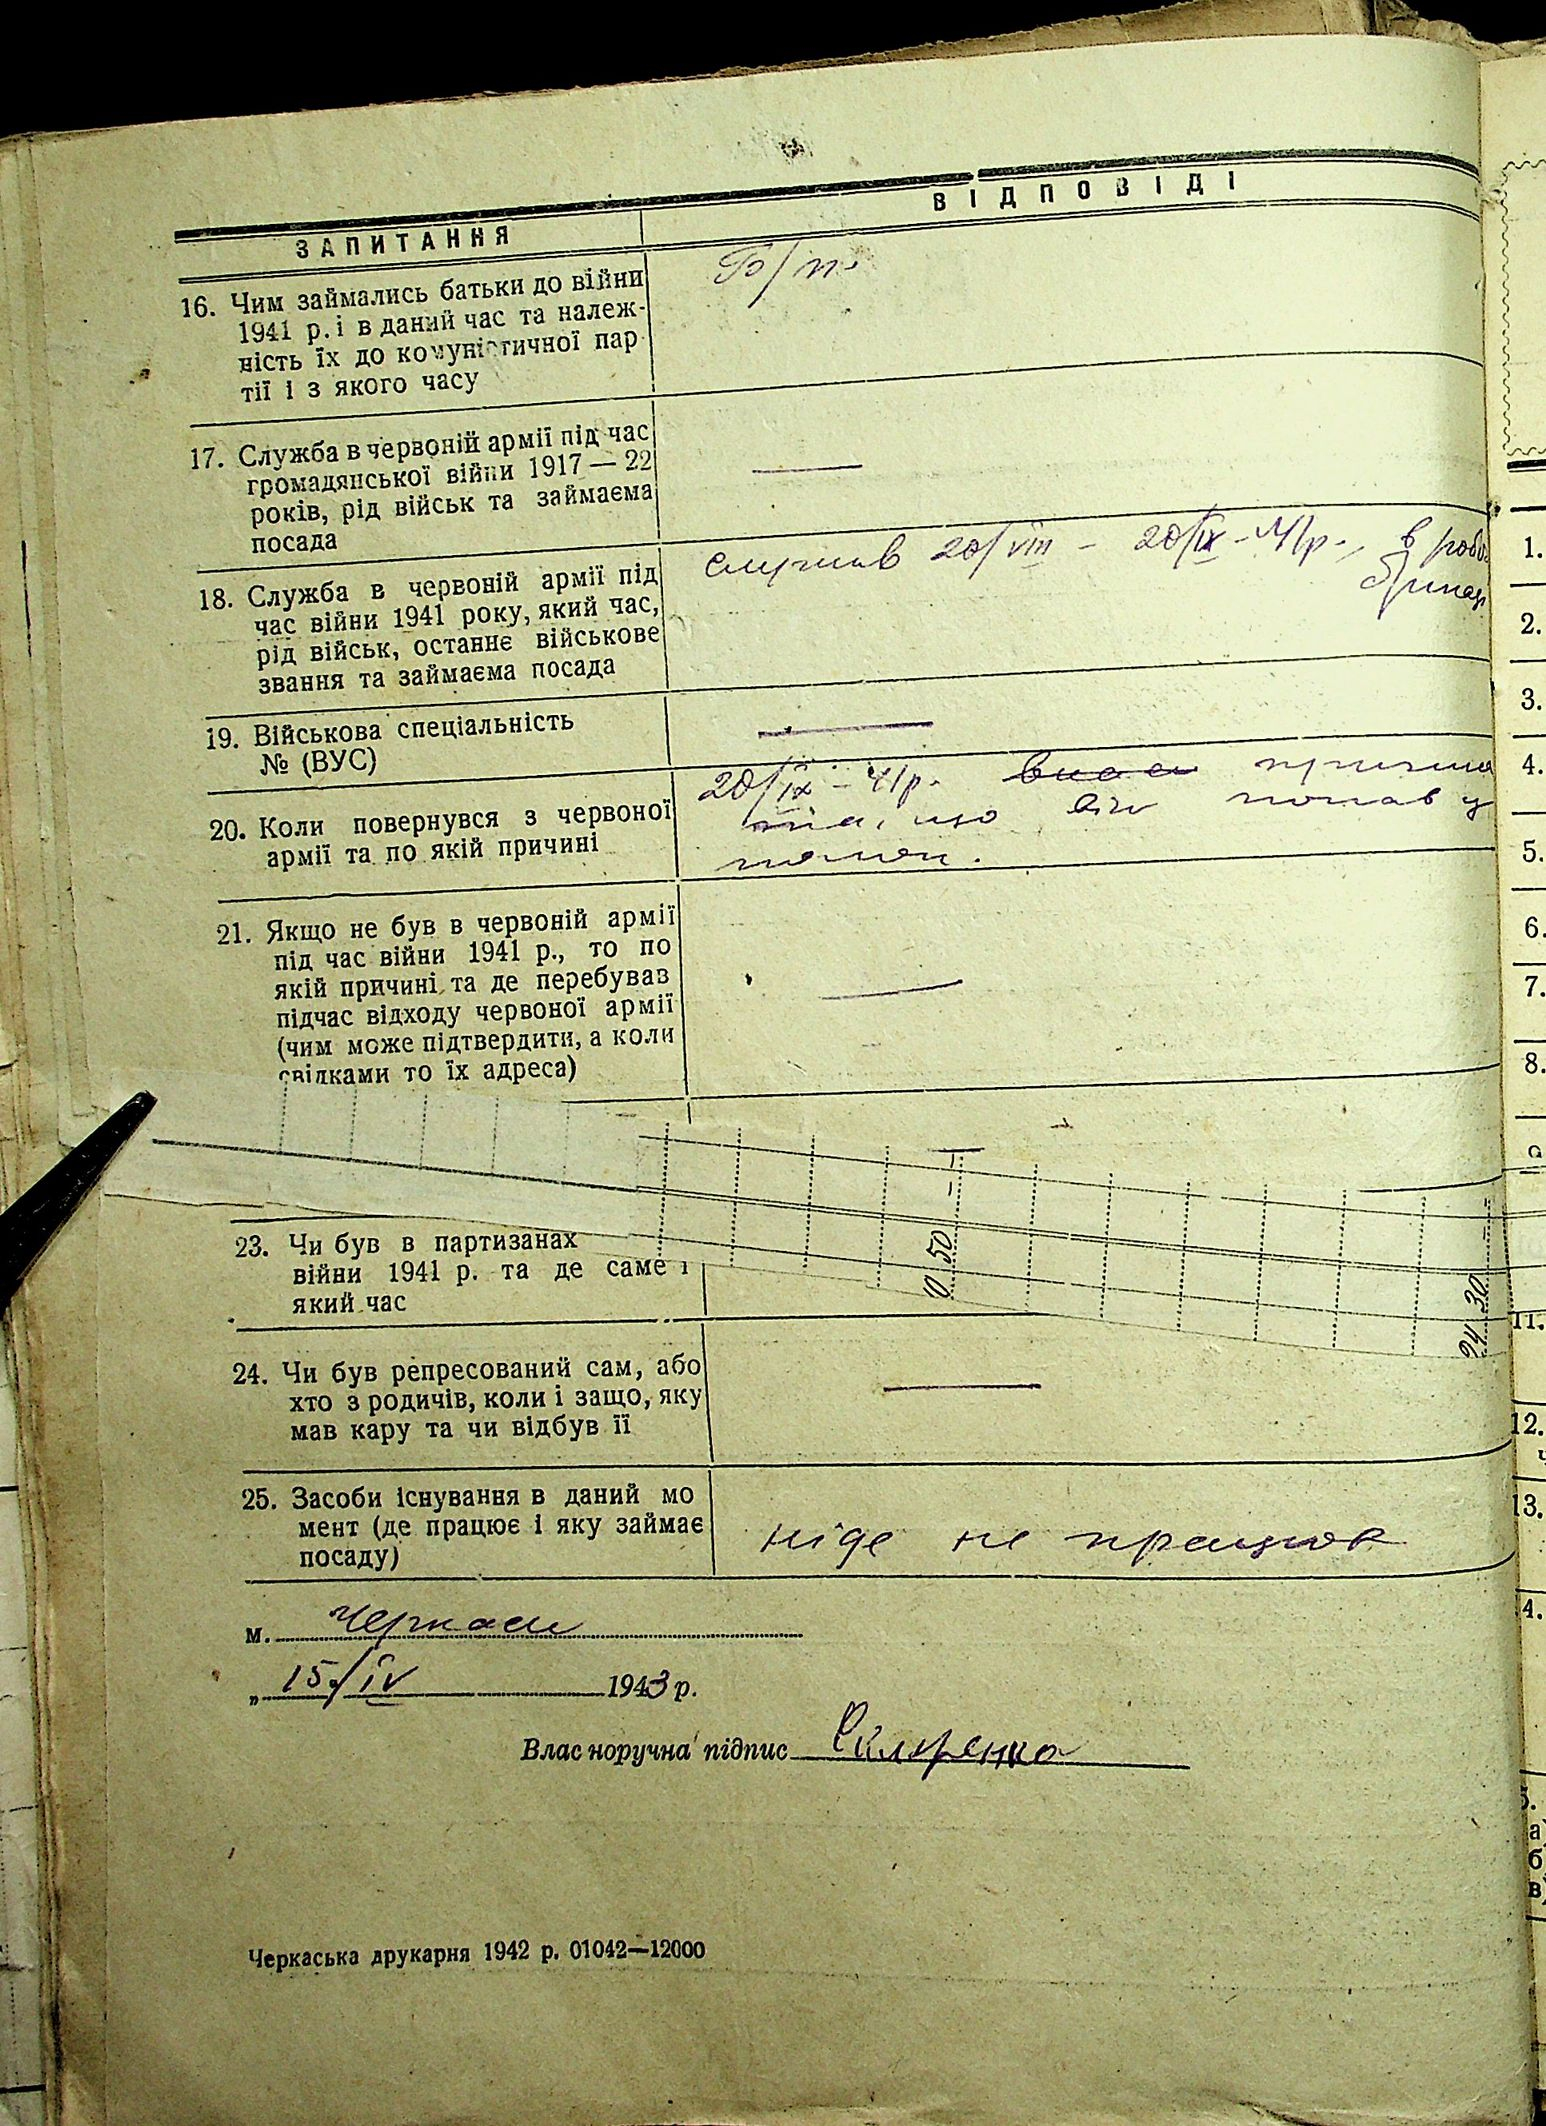 ЗАПИТАННЯ
ВІДПОВІДІ
16. Чим займались батьки до війни
1941 р. і в даний час та належ-
ність їх до комуністичної пар
тії і з якого часу
Б/п.
17. Служба в червоній армії під час
громадянської війни 1917 — 22
років, рід військ та займаєма
посада
—
18. Служба в червоній армії під
час війни 1941 року, який час,
рід військ, останнє військове
звання та займаєма посада
служив 20/VIII - 20/IX - 41р., в робо
19. Військова спеціальність
№ (ВУС)
—
20. Коли повернувся з червоної
армії та по якій причині
20/IX - 41р.
що він попав у
полон.
21. Якщо не був в червоній армії
під час війни 1941 р., то по
якій причині та де перебував
підчас відходу червоної армії
(чим може підтвердити, а коли
свідками то їх адреса)
—
50
94 30
23. Чи був в партизанах
війни 1941 р. та де саме і
який час
24. Чи був репресований сам, або
хто з родичів, коли і защо, яку
мав кару та чи відбув її
—
25. Засоби існування в даний мо
мент (де працює і яку займає
посаду)
ніде не працюв
м. Черкаси
„ 15/IV 1943 р.
Влас норучна підпис
Черкаська друкарня 1942 р. 01042—12000
1.
2.
3.
4.
5.
6.
7.
8.
11.
12.
13.
4.
5.
а)
б
в)